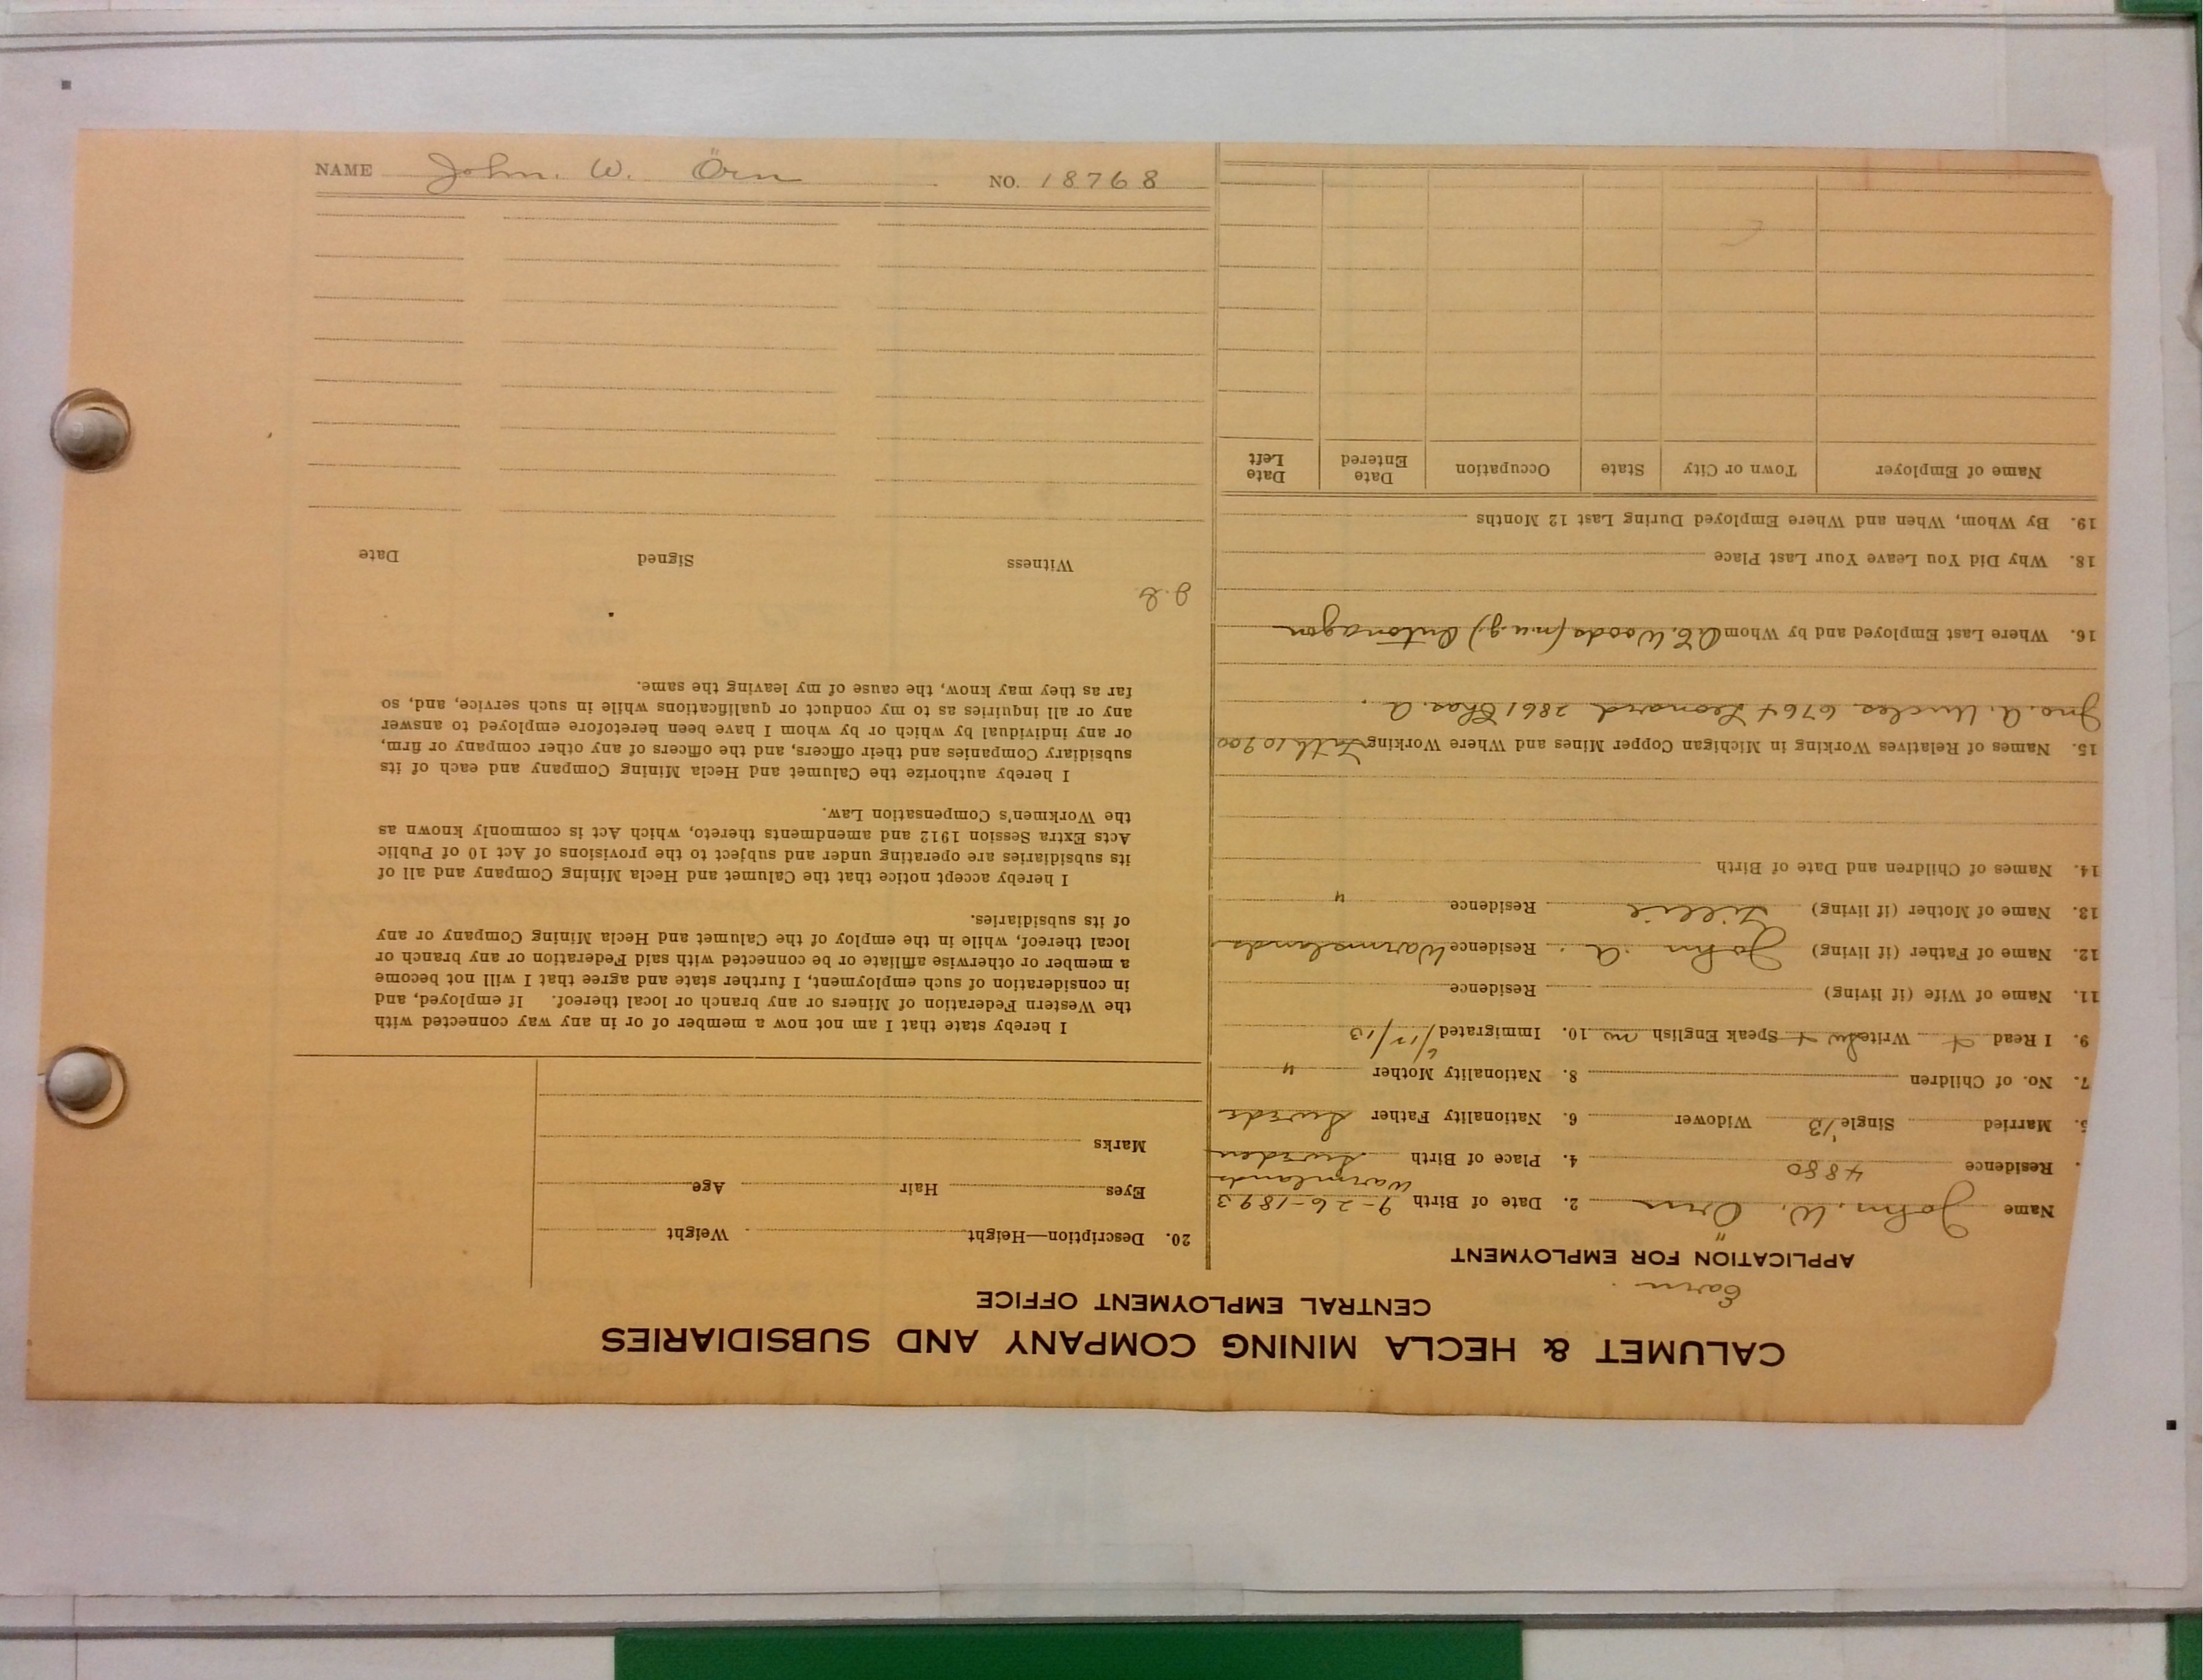 CALUMET & HECLA MINING COMPANY AND SUBSIDIARIES
CENTRAL EMPLOYMENT OFFICE
APPLICATION FOR EMPLOYMENT
Name John. W. Örn 2. Date of Birth 9-26-1893
Warmlands
Residence 4880 4. Place of Birth Sweden
5. Married Single Widower 6. Nationality Father Swede
7. No. of Children 8. Nationality Mother "
9. I Read Write Sw Speak English no 10. Immigrated
11. Name of Wife (if living) Residence
12. Name of Father (if living) John A. Residence Warmlands
13. Name of Mother (if living) Residence "
14. Names of Children and Date of Birth
15. Names of Relatives Working in Michigan Copper Mines and Where Working Fath 10900
Jno. A. Uncles 6764 Leonard 2861 Chas. A.
16. Where Last Employed and by Whom Woods (m.u.g.) Ontonagon
18. Why Did You Leave Your Last Place
19. By Whom, When and Where Employed During Last 12 Months
Name of Employer Town or City State Occupation Date Entered Date Left
20. Description—Height Weight
Eyes Hair Age
Marks
I hereby state that I am not now a member of or in any way connected with
the Western Federation of Miners or any branch or local thereof. If employed, and
in consideration of such employment, I further state and agree that I will not become
a member or otherwise affiliate or be connected with said Federation or any branch or
local thereof, while in the employ of the Calumet and Hecla Mining Company or any
of its subsidiaries.
I hereby accept notice that the Calumet and Hecla Mining Company and all of
its subsidiaries are operating under and subject to the provisions of Act 10 of Public
Acts Extra Session 1912 and amendments thereto, which Act is commonly known as
the Workmen's Compensation Law.
I hereby authorize the Calumet and Hecla Mining Company and each of its
subsidiary Companies and their officers, and the officers of any other company or firm,
or any individual by which or by whom I have been heretofore employed to answer
any or all inquiries as to my conduct or qualifications while in such service, and, so
far as they may know, the cause of my leaving the same.
Witness Signed Date
NAME John. W. Örn NO. 18768